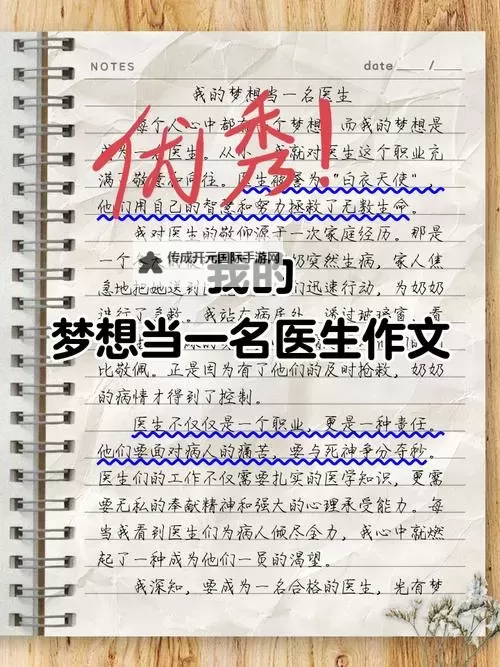 NOTES
date
我的梦想当一名医生
优秀!
每个人心中都有 个梦想 而我的梦想是
医生。从 就对医生这个职业充
满了敬意 往。医生被誉为“白衣天使”,
他们用自己的智慧和努力拯救了无数生命。
我对医生的敬仰源于一次家庭经历。那是
一个 奶突然生病,家人焦
传成开元国际手游网
急地把她送到 们迅速行动,为奶奶
我的
梦想当一名医生作文
比敬佩。正是因为有了他们的及时抢救,奶奶
的病情才得到了控制。
医生不仅仅是一个职业,更是一种责任。
他们要面对病人的痛苦,要与死神争分夺秒。
医生们的工作不仅需要扎实的医学知识,更需
要无私的奉献精神和强大的心理承受能力。每
当我看到医生们为病人倾尽全力,我心中就燃
起了一种成为他们一员的渴望。
我深知,要成为一名合格的医生,光有梦